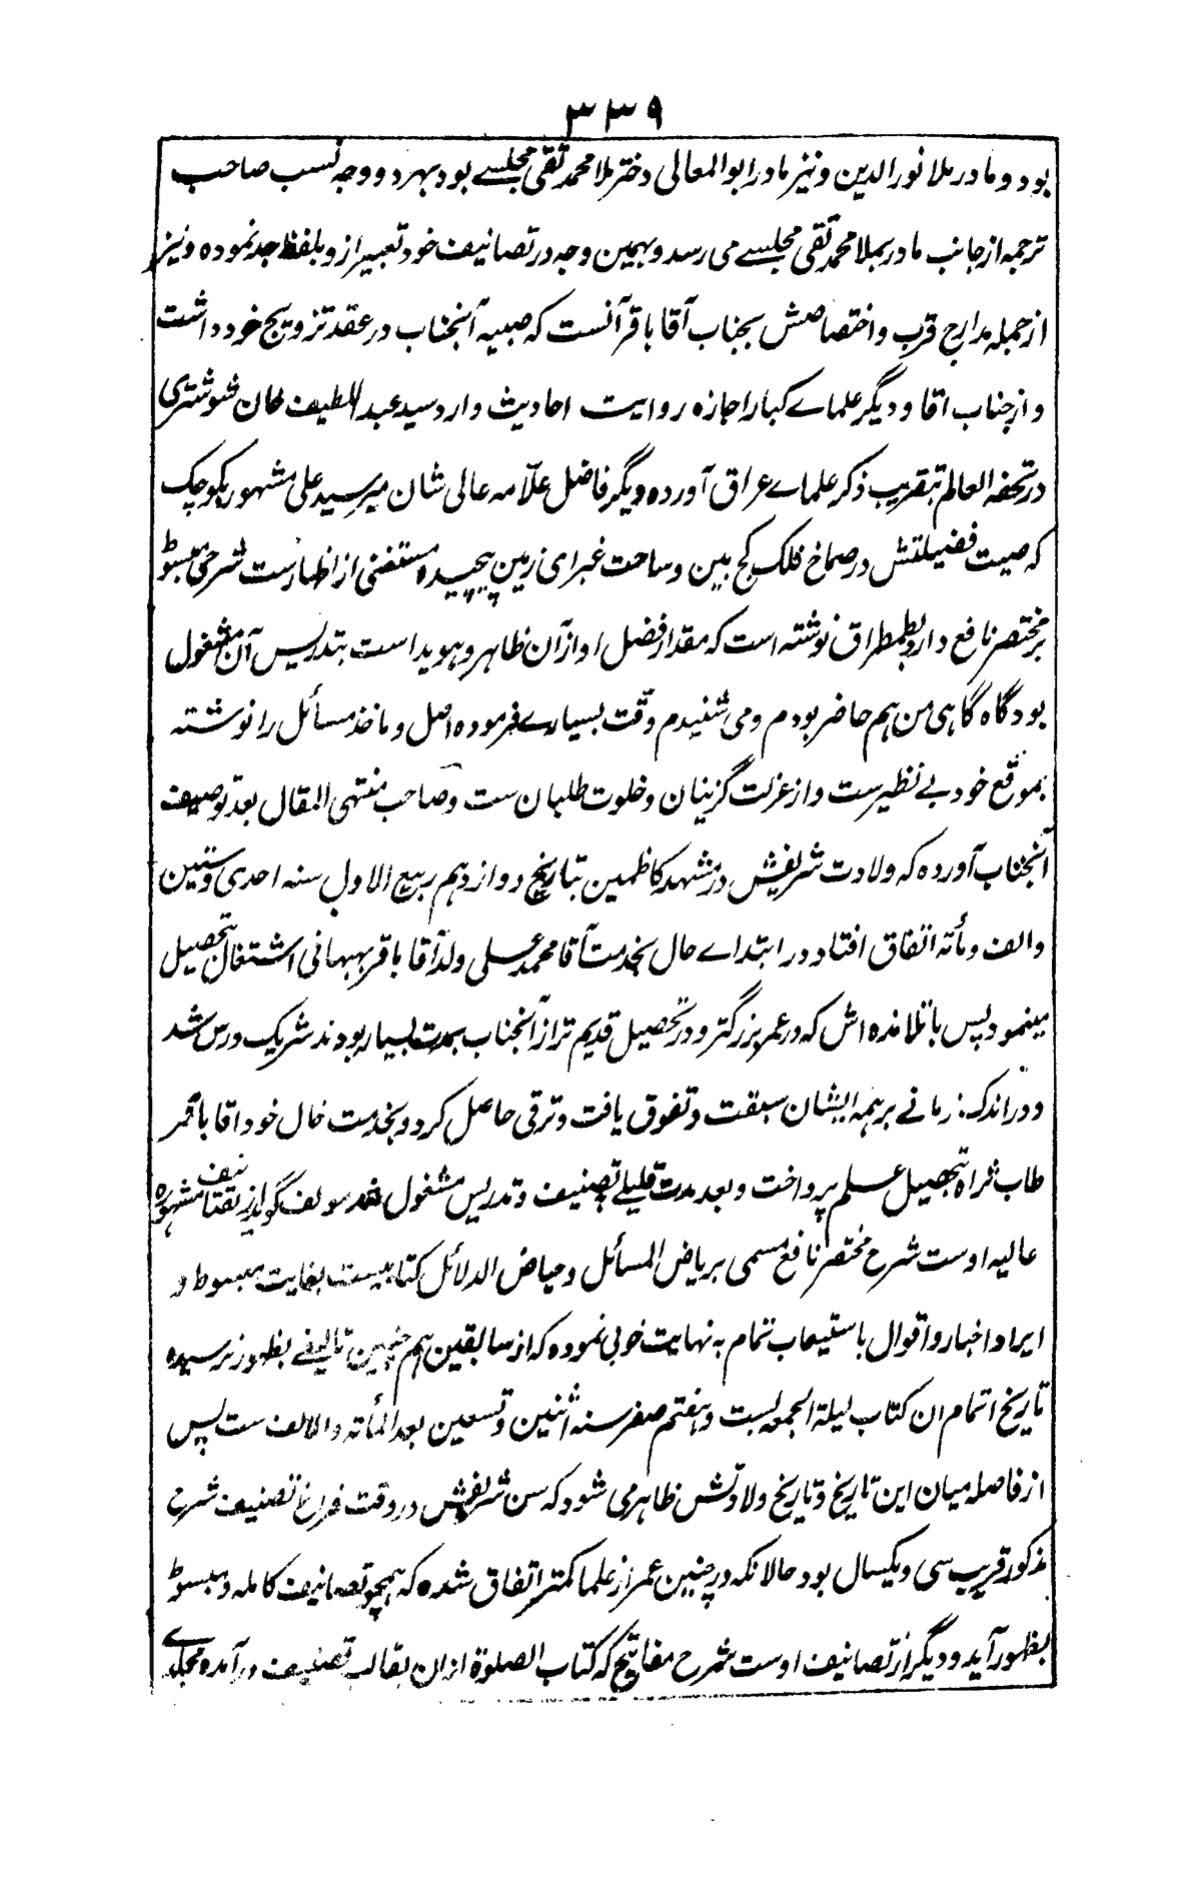 ٣٣٩
بود و مادر ملا نورالدین و نیز مادر ابوالمعالی دختر ملا محمد تقی مجلسے بود بهر دو وجه نسب صاحب
ترجمه از جانب مادر بملا محمد تقی مجلسے می رسد و بهمین وجه در تصانیف خود تعبیر ازو بلفظ جد نموده و نیز
از جمله مدارج قرب و اختصاصش بجناب آقا باقر آنست که صبیه آنجناب در عقد تزویج خود داشت
و از جناب اقا و دیگر علماے کبار اجازه روایت احادیث دارد سید عبد اللطیف خان شوشتری
در تحفه العالم بتقریب ذکر علماے عراق آورده دیگر فاضل علّامه عالی شان میر سید علی مشهور بکوچک
که صیت فضیلتش در صماخ فلک کج بین و ساحت غبرای زمین پیچیده مستغنی از اظهارست شرحی مبسوط
بر مختصر نافع دارد بطمطراق نوشته است که مقدار فضل او از آن ظاهر و هویداست بتدریس آن مشغول
بود گاه گاهی من هم حاضر بودم و می شنیدم دقّت بسیارے فرموده اصل و ماخذ مسائل را نوشته
بموقع خود بے نظیرست و از عزلت گزینان و خلوت طلبان ست و صاحب منتهی المقال بعد توصیف
آنجناب آورده که ولادت شریفش در مشهد کاظمین بتاریخ دوازدهم ربیع الاول سنه احدی و ستین
و الف و مأته اتفاق افتاد در ابتداے حال بخدمت آقا محمد علی ولد آقا باقر بهبهانی اشتغال بتحصیل
مینمود پس با تلامذه اش که در عمر بزرگتر و در تحصیل قدیم تر از آنجناب بمدت بسیار بودند شریک درس شد
و در اندک زمانے بر همه ایشان سبقت و تفوق یافت و ترقی حاصل کرد و بخدمت خال خود اقا باقر
طاب ثراه بتحصیل علم پرداخت و بعد مدت قلیلے بتصنیف و تدریس مشغول شد مولف گوید از تصانیف مشهوره
عالیه اوست شرح مختصر نافع مسمی بریاض المسائل و حیاض الدلائل کتابیست بغایت مبسوط و
ایراد اخبار و اقوال باستیعاب تمام به نهایت خوبی نموده که از سابقین هم چنین تالیفے بظهور نرسیده
تاریخ اتمام ان کتاب لیلة الجمعه بست و هفتم صفر سنه اثنین و تسعین بعد المأته و الالف ست پس
از فاصله میان این تاریخ و تاریخ ولادتش ظاهر می شود که سن شریفش در وقت فراغ تصنیف شرح
مذکور قریب سی و یکسال بود حالانکه در چنین عمر از علما کمتر اتفاق شده که همچو تصانیف کامله و مبسوط
بظهور آید و دیگر از تصانیف اوست شرح مفاتیح که کتاب الصلوة از ان بقالب تصنیف در آمده مجلدے